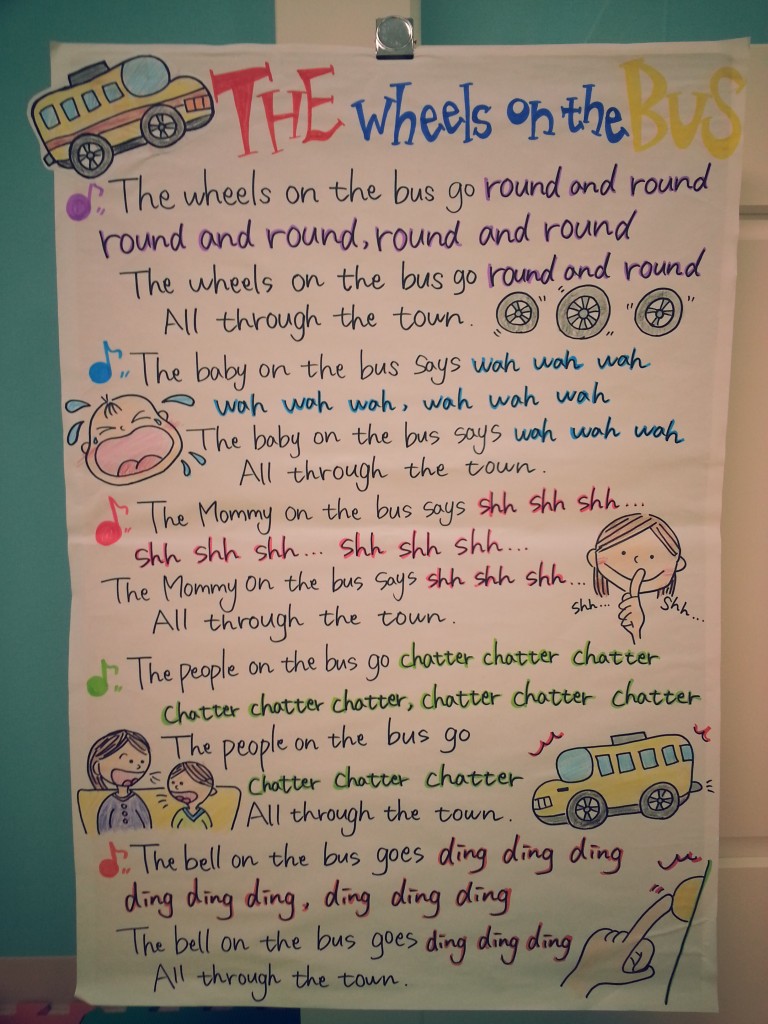 THE wheels on the BUS
The wheels on the bus go round and round
round and round, round and round
The wheels on the bus go round and round
All through the town.
The baby on the bus says wah wah wah
wah wah wah, wah wah wah
The baby on the bus says wah wah wah
All through the town.
The Mommy on the bus says shh shh shh...
shh shh shh... shh shh shh...
The Mommy On the bus says shh shh shh...
All through the town.
shh... Shh...
The people on the bus go chatter chatter chatter
Chatter chatter chatter, chatter chatter chatter
The people on the bus go
chatter chatter chatter
All through the town.
The bell on the bus goes dīng dīng dīng
dīng dīng dīng, dīng dīng dīng
The bell on the bus goes dīng dīng dīng
All through the town.